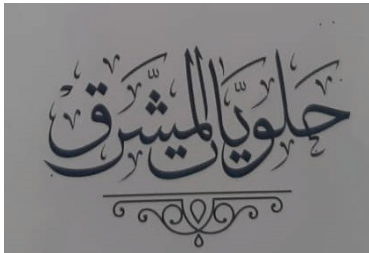 حلويات المشرق